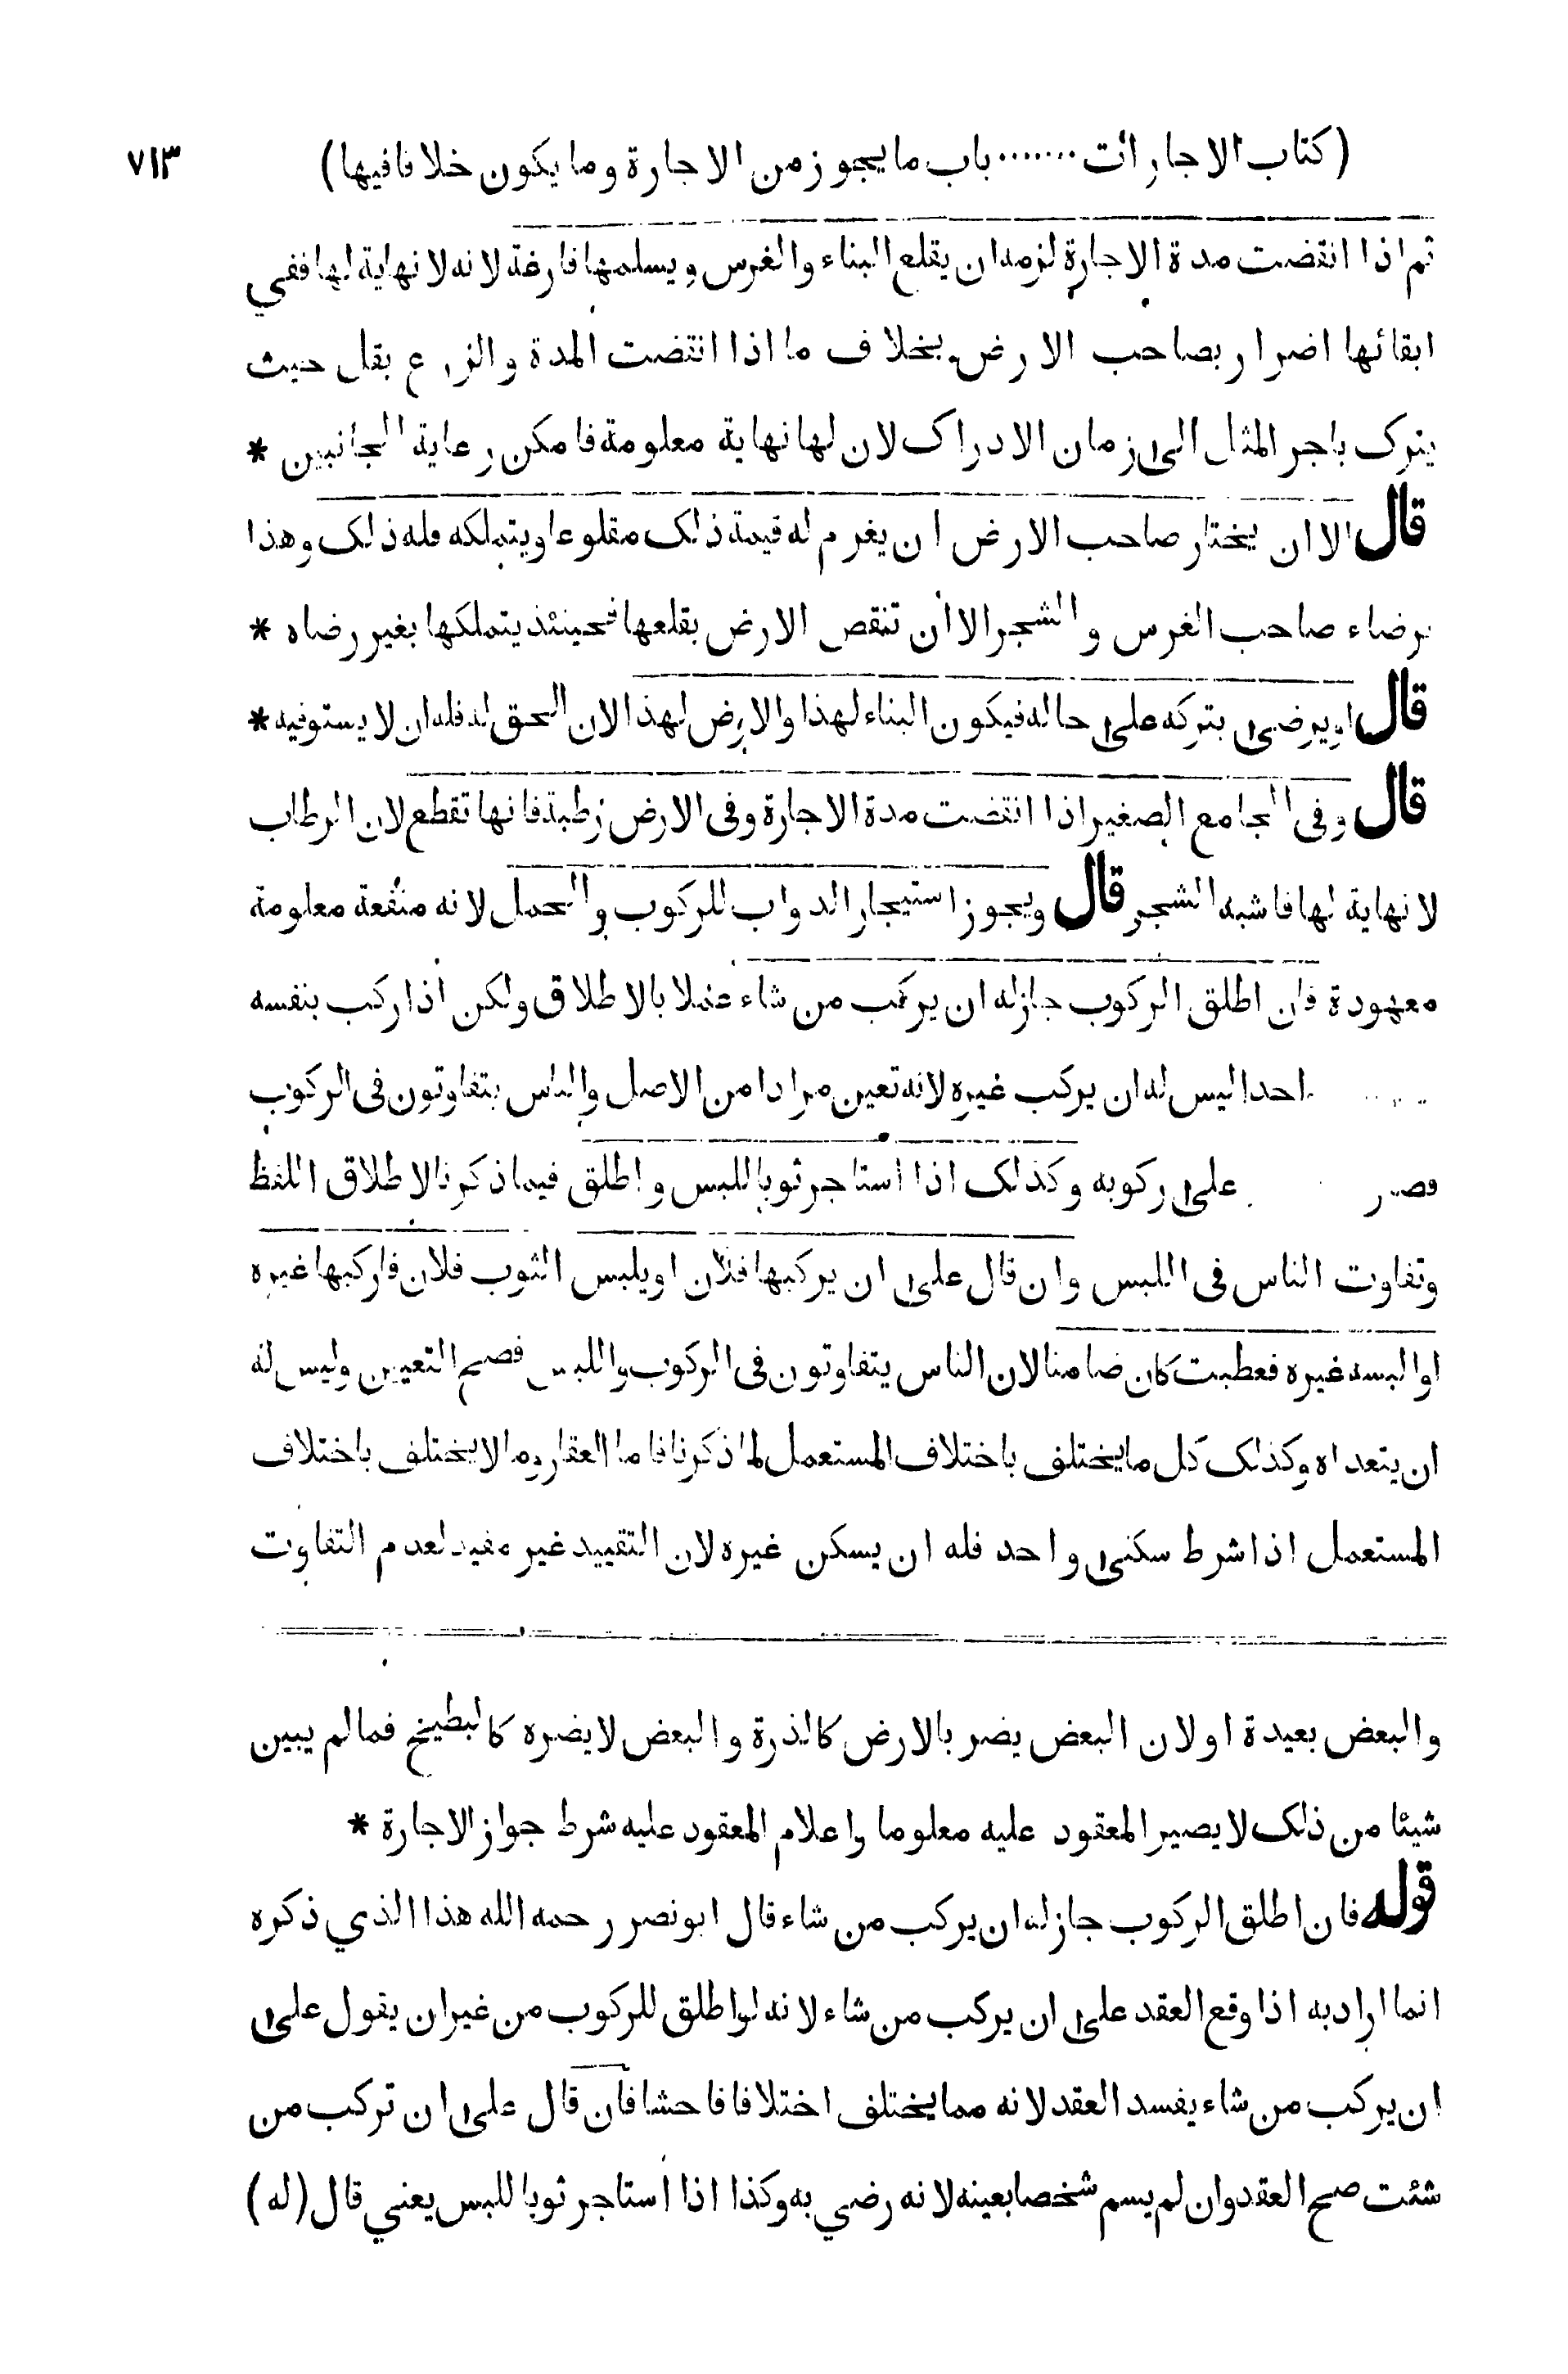 (كتاب الاجارات ....... باب ما يجوز من الاجارة وما يكون خلافا فيها) ٧١٣
ثم اذا انقضت مدة الاجارة لزمه ان يقلع البناء والغرس ويسلمها فارغة لانه لا نهاية لها ففي
ابقائها اضرار بصاحب الارض بخلاف ما اذا انقضت المدة والزرع بقل حيث
يترك باجر المثل الى زمان الادراك لان لها نهاية معلومة فامكن رعاية الجانبين *
قال الا ان يختار صاحب الارض ان يغرم له قيمة ذلك مقلوعا ويتملكه فله ذلك وهذا
برضاء صاحب الغرس والشجر الا أن تنقص الارض بقلعها فحينئذ يتملكها بغير رضاه *
قال او يرضى بتركه على حاله فيكون البناء لهذا والارض لهذا لان الحق له فله ان لا يستوفيه *
قال وفى الجامع الصغير اذا انقضت مدة الاجارة وفى الارض رطبة فانها تقطع لان الرطاب
لا نهاية لها فاشبه الشجر قال ويجوز استيجار الدواب للركوب والحمل لانه منفعة معلومة
معهودة فان اطلق الركوب جاز له ان يركب من شاء عملا بالاطلاق ولكن اذا ركب بنفسه
احدا ليس له ان يركب غيره لانه تعين مرادا من الاصل والناس يتفاوتون فى الركوب
على ركوبه وكذلك اذا استاجر ثوبا للبس واطلق فيما ذكرنا لاطلاق اللفظ
وتفاوت الناس فى اللبس وان قال على ان يركبها فلان او يلبس الثوب فلان فاركبها غيره
او البسه غيره فعطبت كان ضامنا لان الناس يتفاوتون فى الركوب واللبس فصح التعيين وليس له
ان يتعداه وكذلك كل ما يختلف باختلاف المستعمل لما ذكرنا فاما العقار وما لا يختلف باختلاف
المستعمل اذا شرط سكنى واحد فله ان يسكن غيره لان التقييد غير مفيد لعدم التفاوت
والبعض بعيدة او لان البعض يضر بالارض كالذرة والبعض لا يضره كالبطيخ فما لم يبين
شيئا من ذلك لا يصير المعقود عليه معلوما واعلام المعقود عليه شرط جواز الاجارة *
قوله فان اطلق الركوب جاز له ان يركب من شاء قال ابو نصر رحمه الله هذا الذي ذكره
انما اراد به اذا وقع العقد على ان يركب من شاء لانه لو اطلق للركوب من غير ان يقول على
ان يركب من شاء يفسد العقد لانه مما يختلف اختلافا فاحشا فان قال على ان تركب من
شئت صح العقد وان لم يسم شخصا بعينه لانه رضي به وكذا اذا استاجر ثوبا للبس يعني قال (له)